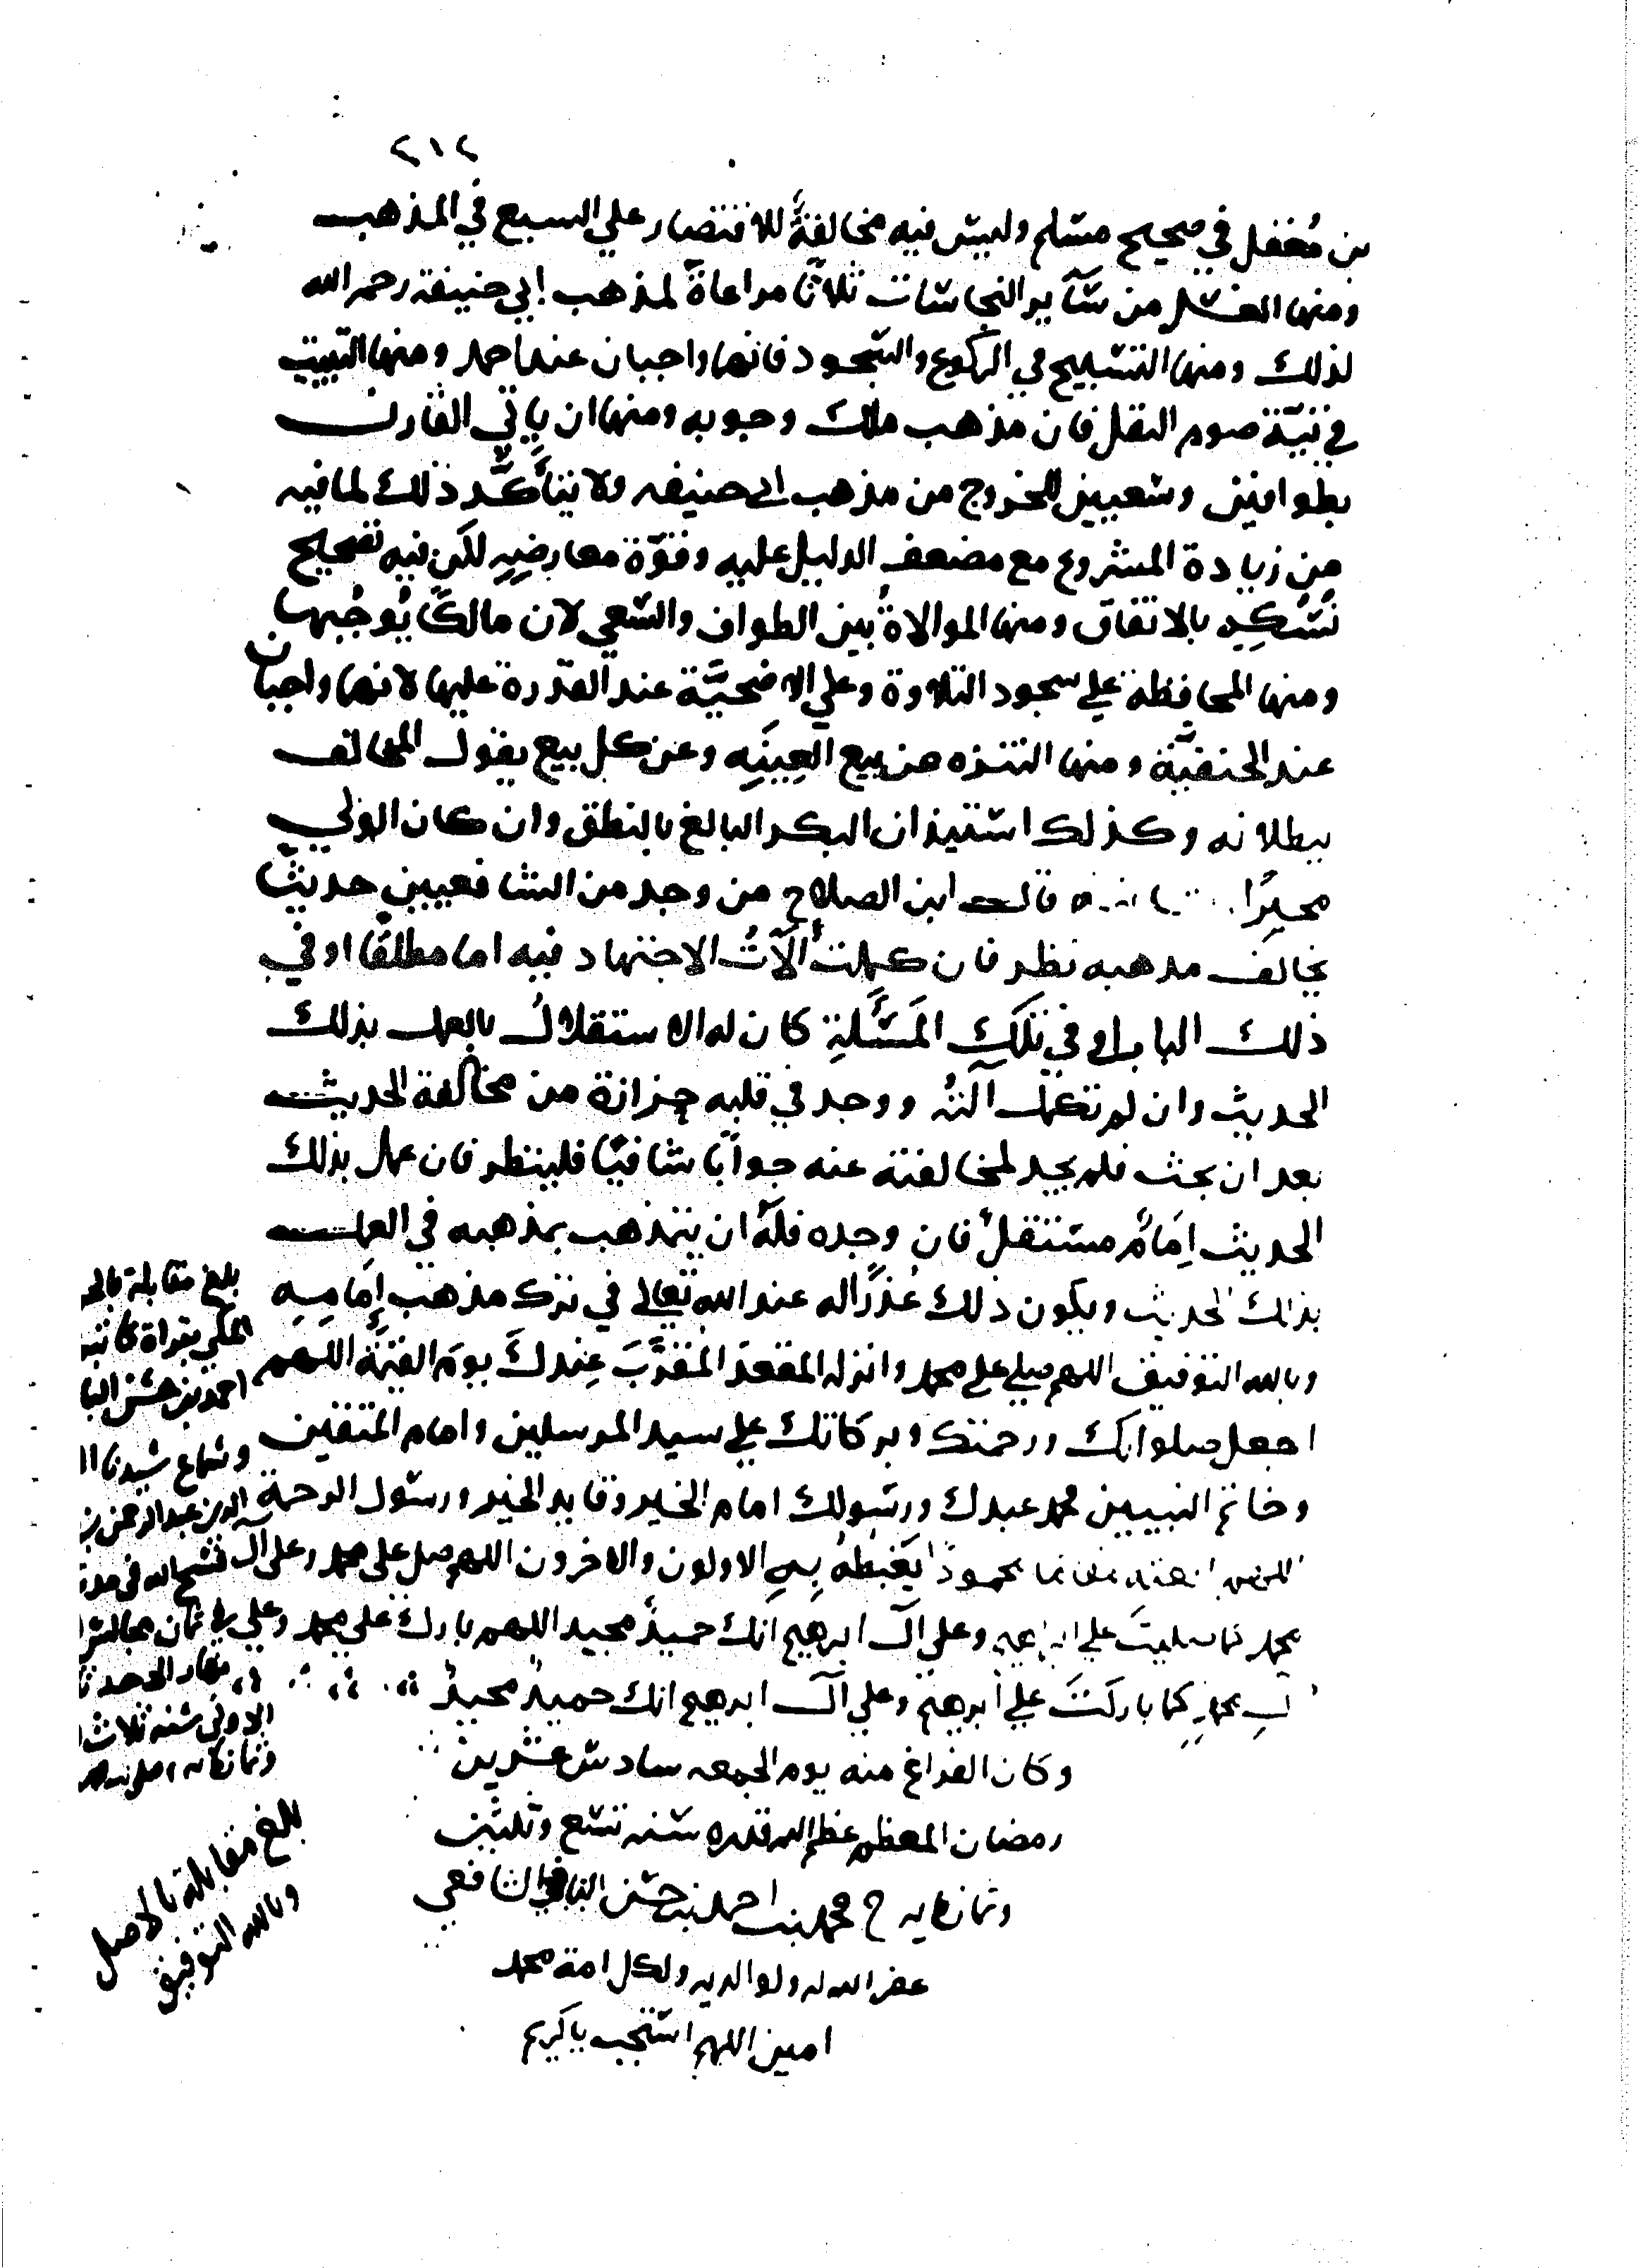 ٢١٢
بن مُغفل في صحيح مسلم وليس فيه مخالفةً للاقتصار على السبع في المذهب
ومنها الغسل من ساير النجاسات ثلاثا مراعاةً لمذهب ابي حنيفة رحمه الله
لذلك ومنها التسبيح في الركوع والسجود فانهما واجبان عند احمد ومنها التبييت
في نيّة صوم النفل فان مذهب ملك وجوبه ومنها ان ياتي القارن
بطوافين وسعيين للخروج من مذهب ابي حنيفه ولا يتأكّد ذلك لما فيه
من زيادة المشروع مع ضعف الدليل عليه وقوّة معارضِهِ لكن فيه تصحيح
نسكِهِ بالاتفاق ومنها الموالاةُ بين الطواف والسعي لان مالكًا يُوجُبها
ومنها المحافظة على سجود التلاوة وعلى الاضحيَّة عند القدرة عليها لانهما واجبان
عند الحنفيَّة ومنها التنزه عن بيع العِينَه وعن كل بيع يقول المخالف
ببطلانه وكذلك استيذان البكر البالغ بالنطق وان كان الولي
مجبرًا قال ابن الصلاح من وجد من الشافعيين حديثًا
يخالف مذهبه نظر فان كملت آلآتُ الاجتهاد فيه اما مطلقًا او في
ذلك الباب او في تلكِ المَسْئَلةِ كان له الاستقلالُ بالعمل بذلك
الحديث وان لم تكمل آلتُه ووجد في قلبه حزازة من مخالفة الحديث
بعد ان بحث فلم يجد لمخالفته عنه جوابًا شافيًا فلينظر فان عمل بذلك
الحديث اِمَامٌ مستقلٌ فان وجده فلهُ ان يتمذهب بمذهبه في العمل
بذلك الحديث ويكون ذلك عُذرًا له عند الله تعالى في ترك مذهب إِمَامِهِ
وبالله التوفيق اللهم صلي على محمد وانزله المقعدَ المُقرَّبَ عِندكَ يومَ القيمَة اللهم
اجعل صلواتك ورحمتك وبركاتك على سيد المرسلين وامام المتقين
وخاتم النبيين محمد عبدك ورسولك امام الخير وقايد الخير ورسول الرحمة
اللهم ابعثه مقاما محمودًا يَغبطهُ بِهِ الاولون والاخرون اللهم صل على محمد وعلى آل
محمد كما صليتَ على ابراهيم وعلى آل ابرهيم انك حميدٌ مجيد اللهم بارك على محمد وعلى
آلِ محمدٍ كما باركتَ على أبرهيم وعلى آل ابرهيم انك حميدٌ مجيدٌ
وكان الفراغ منه يوم الجمعه سادس عشرين
رمضان المعظم عظم الله قدره سنه تسع وثلثين
وثمانمايه محمد بن احمد بن حسن الشافعي
غفر الله له ولوالديه ولكل امة محمد
امين اللهم استجب يا كريم
بلغ مقابلة
بقراة كاتبه
احمد بن حسن
وسماع سيدنا
الدين عبد الرحمن بن
فسح الله في مدته
ثمان مجالس
نهار الاحد
الاولى سنه ثلاث
وثمانمائه
بلغ مقابلة بالاصل
وبالله التوفيق